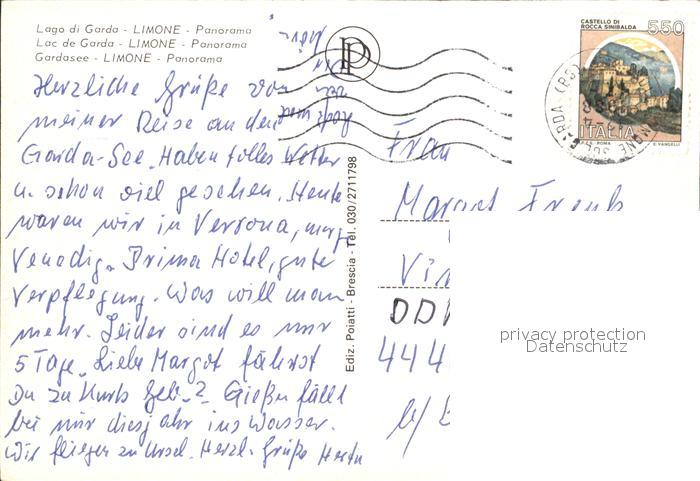 Lago di Garda - LIMONE - Panorama
Lac de Garda - LIMONE - Panorama
Gardasee - LIMONE - Panorama
Herzliche Grüße von
meiner Reise an den
Garda-See. Haben tolles Wetter
u. schon viel gesehen. Heute
waren wir in Verona, morg.
Venedig. Prima Hotel, gute
Verpflegung. Was will man
mehr. Leider sind es nur
5 Tage. Liebe Margot fährst
Du zu Kurts Geb.? Gießen fällt
bei mir dies Jahr ins Wasser.
Wir fliegen zu Ursel. Herzl. Grüße Herta
Ediz. Poiatti - Brescia - Tel. 030/2711798
P
CASTELLO DI
ROCCA SINIBALDA
550
ITALIA
E. VANGELLI
Frau
Margot
DD
444
privacy protection
Datenschutz